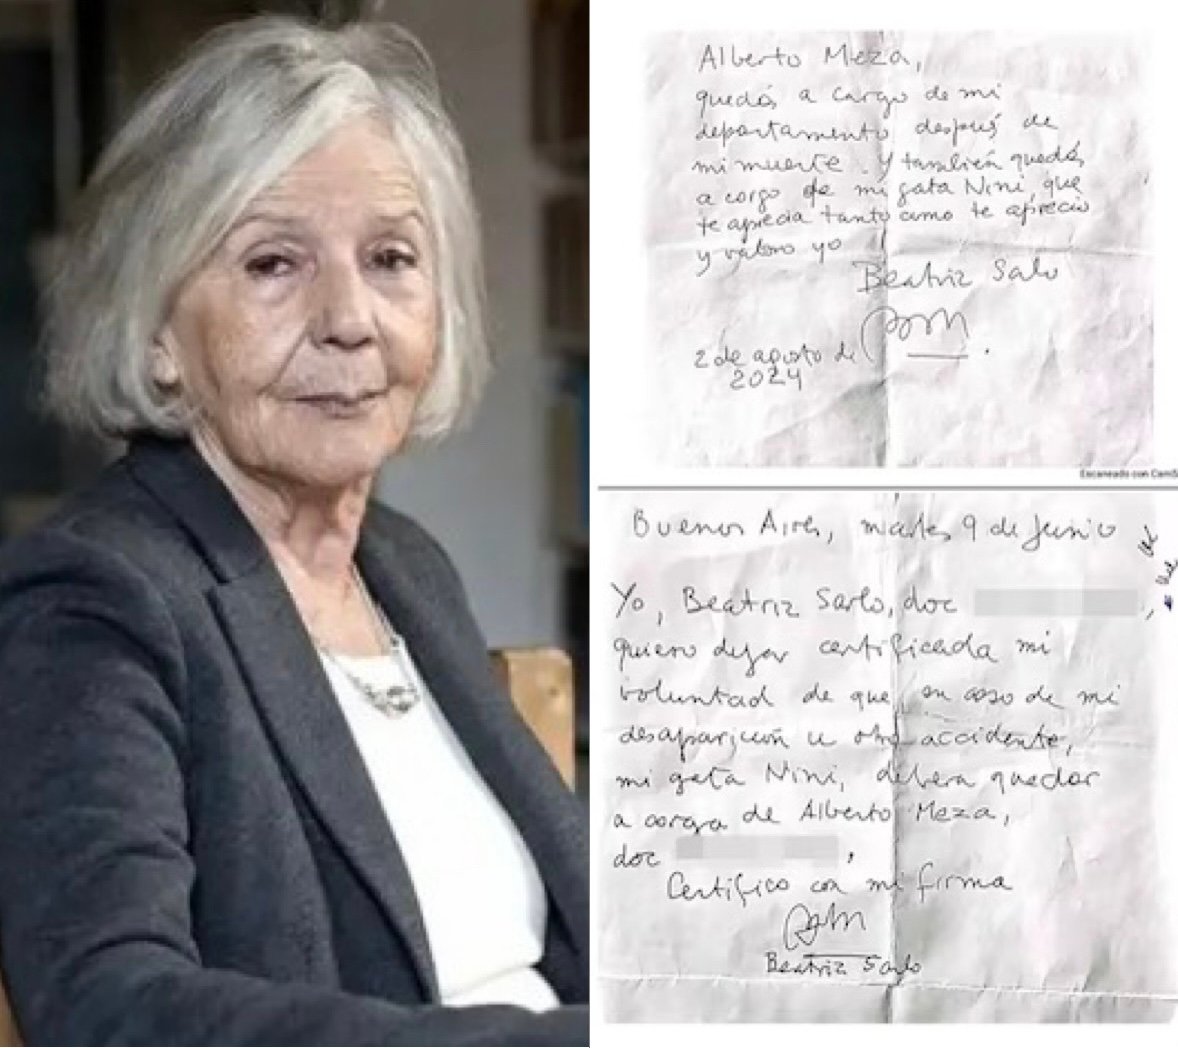 Alberto Meza,
quedás a cargo de mi
departamento después de
mi muerte. Y también quedás
a cargo de mi gata Nini, que
te aprecia tanto como te aprecio
y valoro yo
Beatriz Sarlo
2 de agosto de
2024
Escaneado con CamS
Buenos Aires, martes 9 de Junio
Yo, Beatriz Sarlo, doc
quiero dejar certificada mi
voluntad de que, en caso de mi
desaparición u otro accidente,
mi gata Nini, deberá quedar
a cargo de Alberto Meza,
doc ,
Certifico con mi firma
Beatriz Sarlo